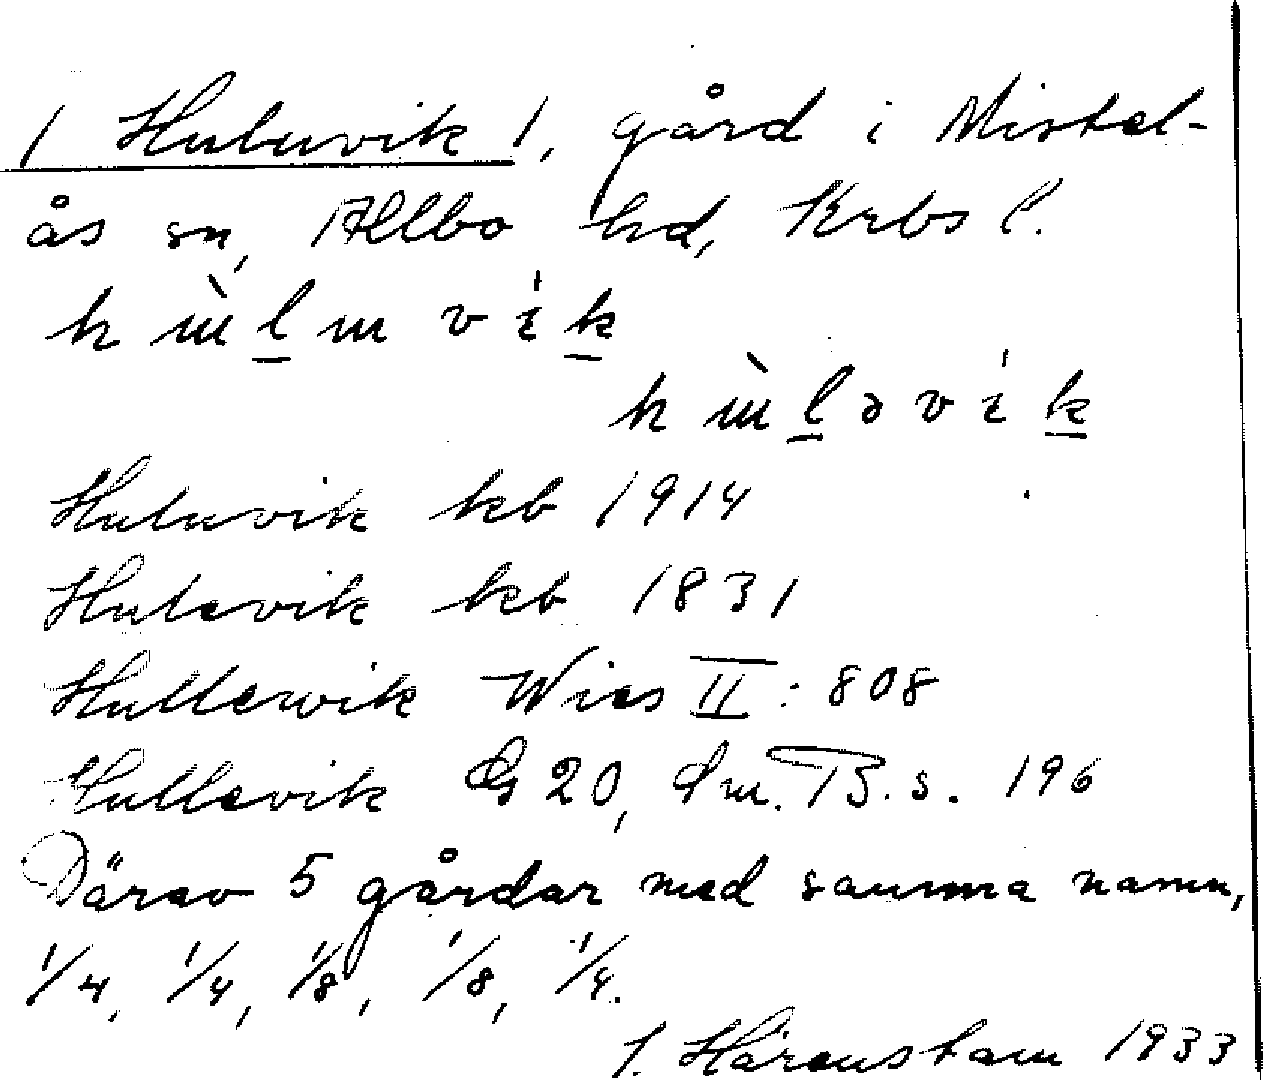 1 Huluvik 1, gård i Mistel-
ås sn, Allbo hd, Krbs l.
h ù l u v í k
h ù l ə v í k
Huluvik kb 1914
Hulevik kb 1831
Hullewik Wies II: 808
Hullevik G 20, Sm. B. s. 196
Därav 5 gårdar med samma namn,
1/4, 1/4, 1/8, 1/8, 1/4.
J. Härenstam 1933